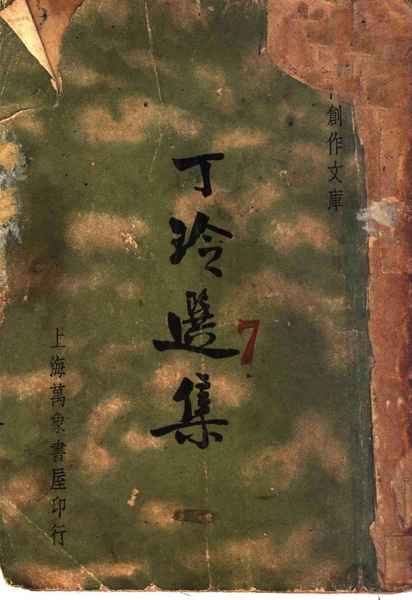 創作文庫
丁玲選集
7
上海萬象書屋印行